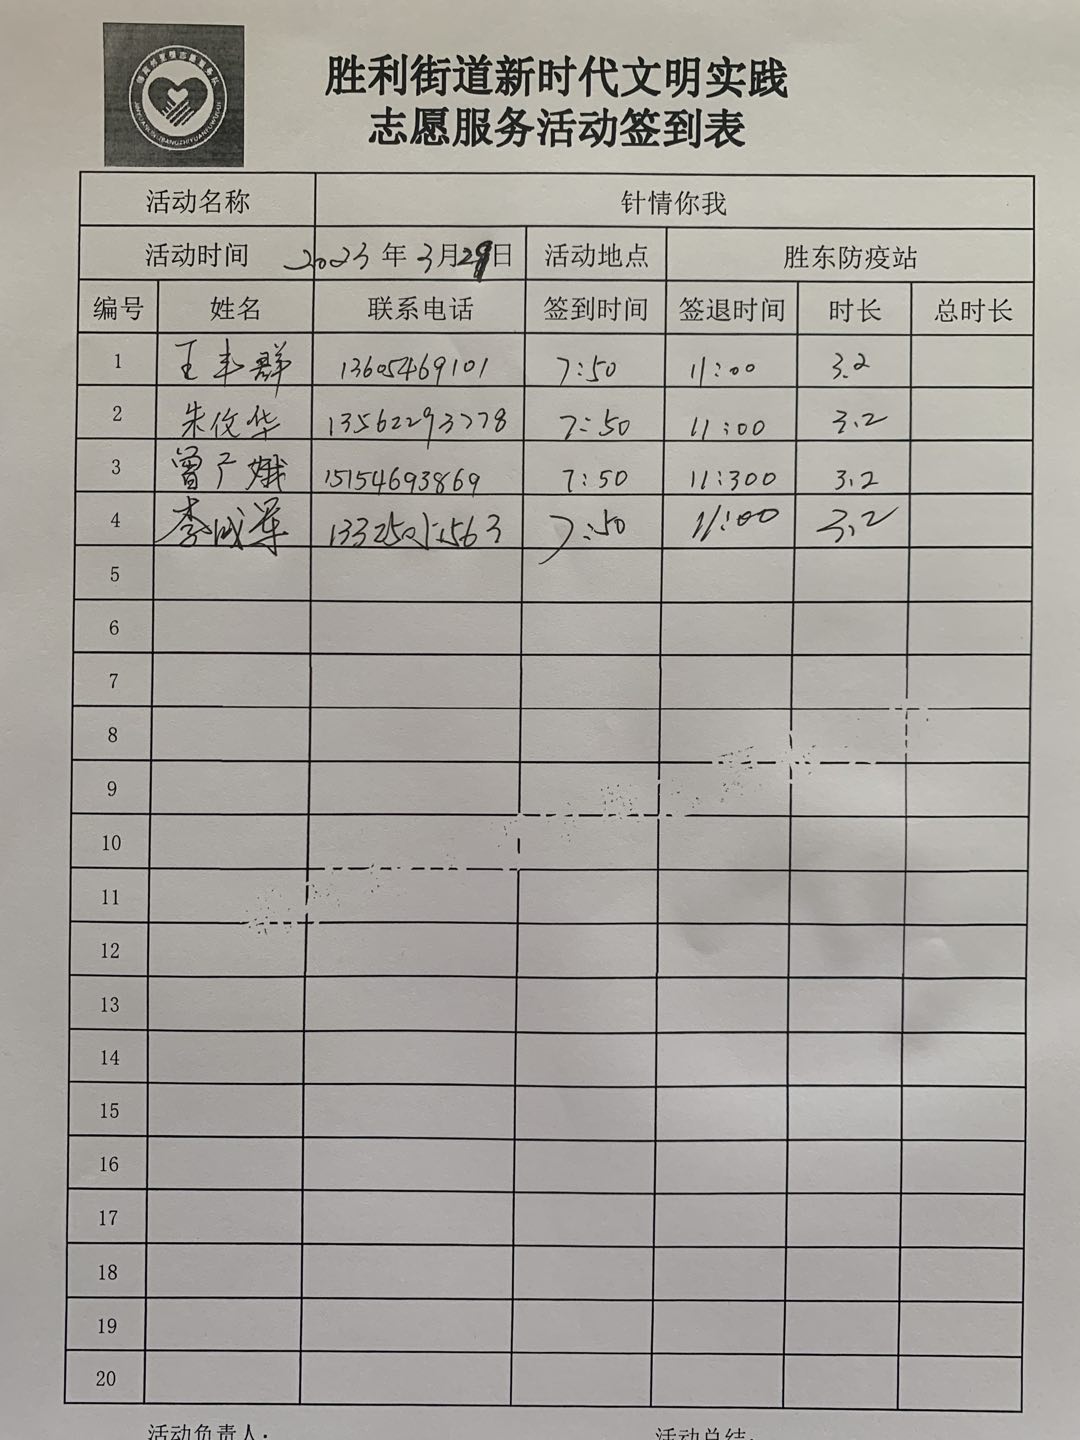 胜利街道新时代文明实践
志愿服务活动签到表
活动名称 针情你我
活动时间 2023年3月29日 活动地点 胜东防疫站
编号 姓名 联系电话 签到时间 签退时间 时长 总时长
1 王丰群 13605469101 7:50 11:00 3.2
2 朱俊华 13562293778 7:50 11:00 3.2
3 曾广娥 15154693869 7:50 11:300 3.2
4 李成军 7:50 11:00 3.2
5
6
7
8
9
10
11
12
13
14
15
16
17
18
19
20
活动负责人: 活动总结: